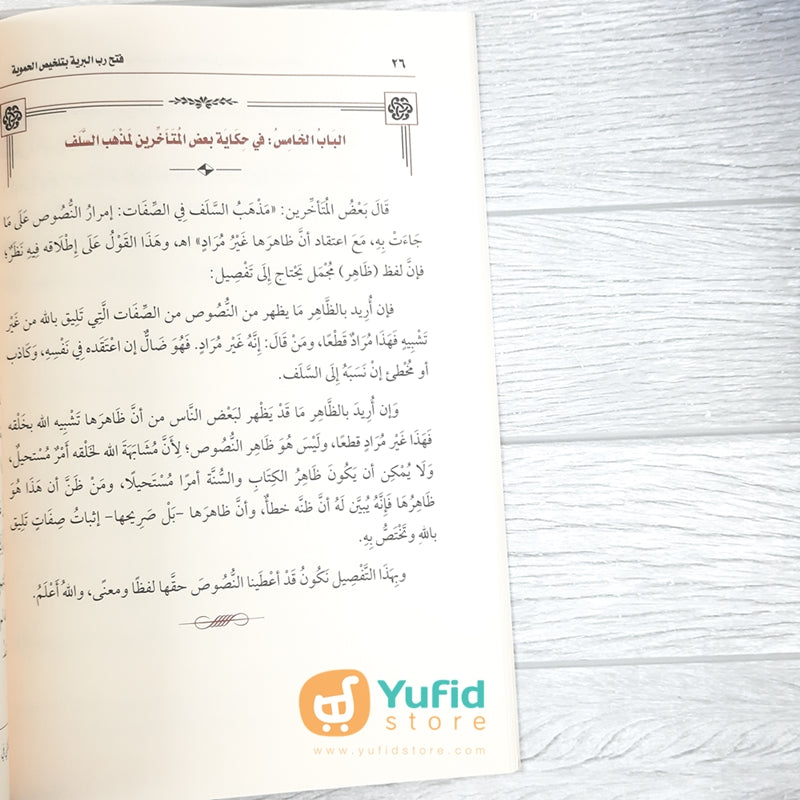 ٢٦
فتح رب البرية بتلخيص الحموية
البَابُ الخَامِسُ: في حِكَايَة بعض المُتَأخِّرين لمَذْهَب السَّلَف
قَالَ بَعْضُ المُتَأخِّرين: «مَذْهَبُ السَّلَف فِي الصِّفَات: إمرارُ النُّصُوص عَلَى مَا
جَاءَتْ بِهِ، مَعَ اعتقاد أنَّ ظاهرَها غَيْرُ مُرَادٍ» اهـ، وهَذَا القَوْلُ عَلَى إطْلَاقه فِيهِ نَظَرٌ؛
فإنَّ لفظ (ظَاهِر) مُجْمَل يَحْتاج إلَى تَفْصِيل:
فإن أُرِيد بالظَّاهِر مَا يظهر من النُّصُوص من الصِّفَات الَّتِي تَلِيق بالله من غَيْر
تَشْبِيهٍ فَهَذَا مُرَادٌ قَطْعًا، ومَنْ قَالَ: إنَّهُ غَيْر مُرَادٍ. فَهُوَ ضَالٌّ إن اعْتَقَده فِي نَفْسِهِ، وَكَاذب
أو مُخْطئ إنْ نَسَبَهُ إلَى السَّلَف.
وَإن أُرِيدَ بالظَّاهِر مَا قَدْ يَظْهر لبَعْض النَّاس من أنَّ ظاهرَها تَشْبِيه الله بخَلْقه
فَهَذَا غَيْر مُرَادٍ قطعًا، ولَيْسَ هُوَ ظَاهِر النُّصُوص؛ لِأَنَّ مُشَابَهَةَ الله لخَلْقه أَمْرٌ مُسْتحيلٌ،
وَلَا يُمْكِن أن يَكُونَ ظَاهِرُ الكِتَابِ والسُّنَّة أمرًا مُسْتَحيلًا، ومَنْ ظَنَّ أن هَذَا هُوَ
ظَاهِرُهَا فَإنَّهُ يُبيَّن لَهُ أنَّ ظنَّه خطأٌ، وأنَّ ظاهرَها -بَلْ صَرِيحها- إثباتُ صِفَاتٍ تَلِيق
باللهِ وتَخْتَصُّ بِهِ.
وبِهَذَا التَّفْصِيل نَكُونُ قَدْ أَعْطَينا النُّصُوصَ حقَّها لفظًا ومعنًى، واللهُ أَعْلَمُ.
Yufid
store
www.yufidstore.com